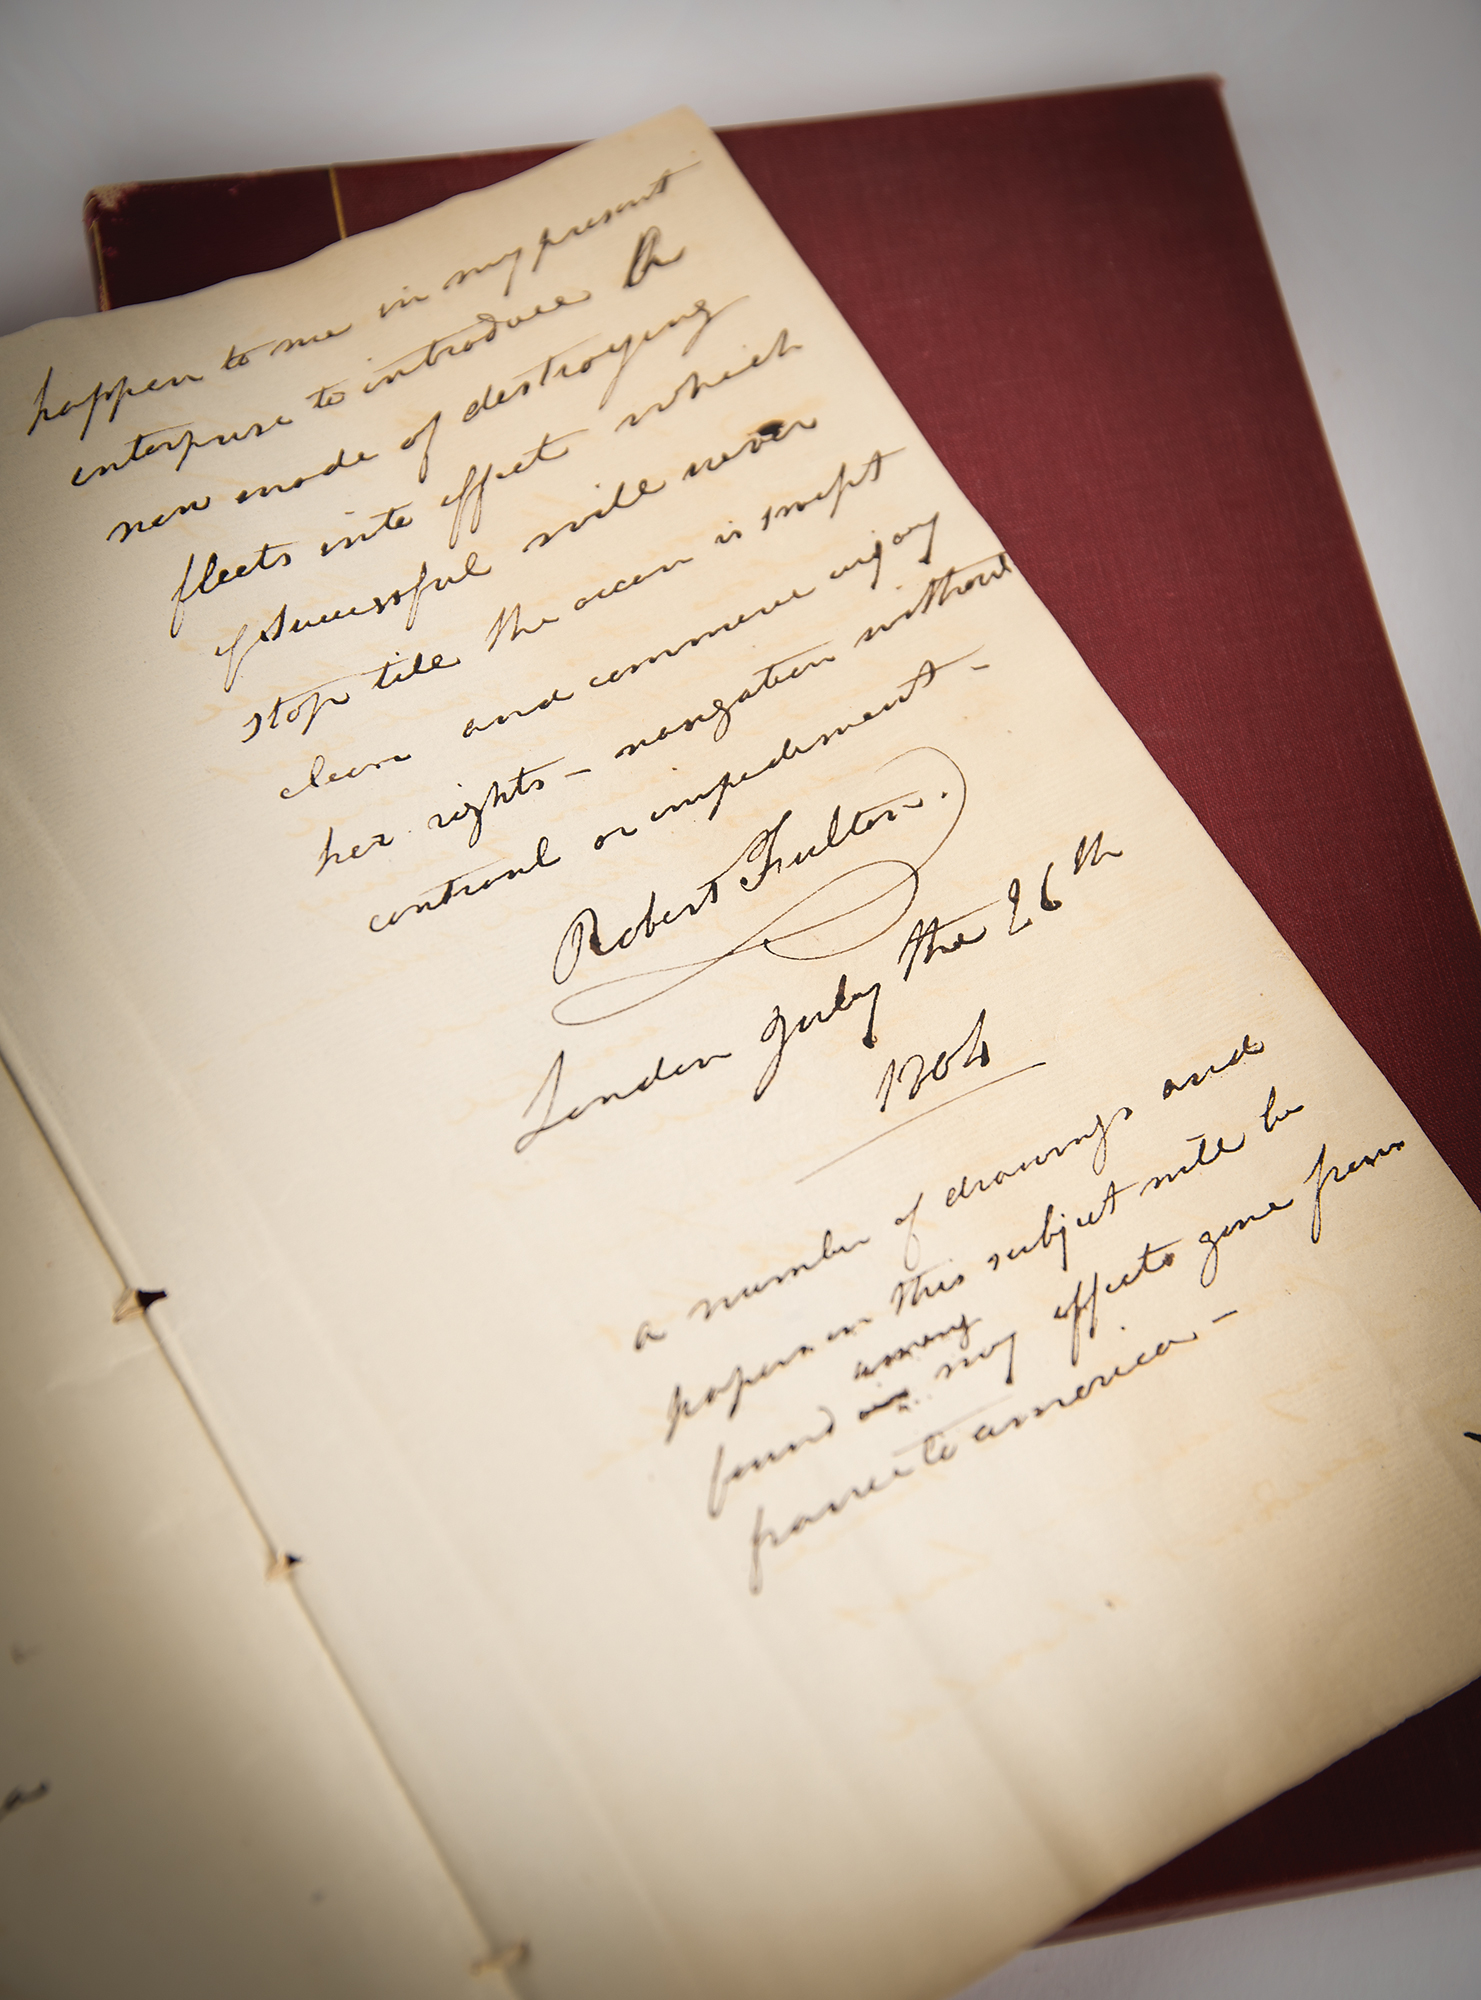 happen to me in my present
enterprise to introduce
new mode of destroying
fleets into effect which
if successful will never
stop till the ocean is swept
clean and commerce enjoy
her rights – navigation without
controul or impediment –
Robert Fulton.
London July the 26th
1804
a number of drawings and
papers on this subject will be
among
found in my effects gone from
france to america –